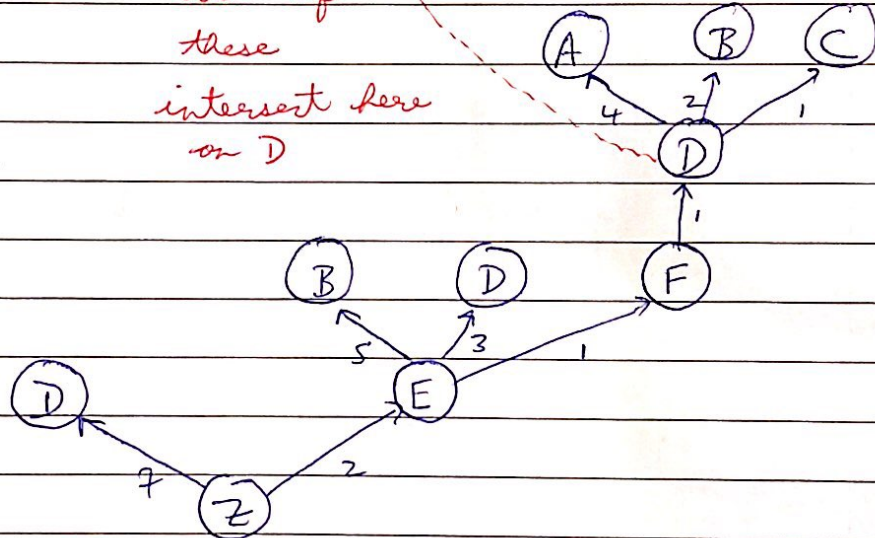 these
intersect here
on D
A B C
4 2 1
D
1
B D F
5 3 1
D E
7 2
Z